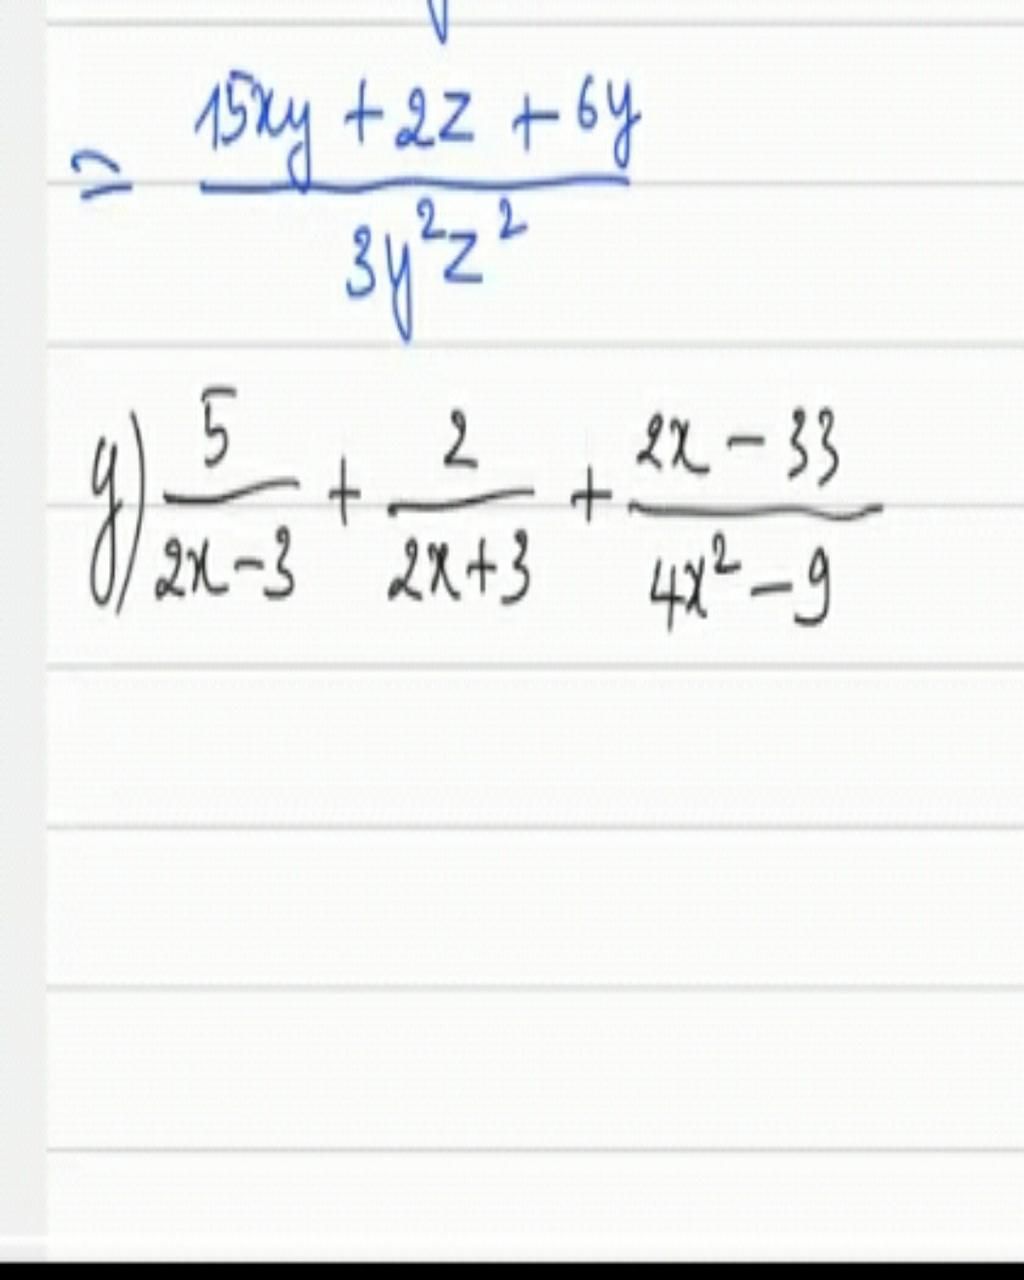 = \frac{15xy + 2z + 6y}{3y^2z^2}
g) \frac{5}{2x-3} + \frac{2}{2x+3} + \frac{2x-33}{4x^2-9}